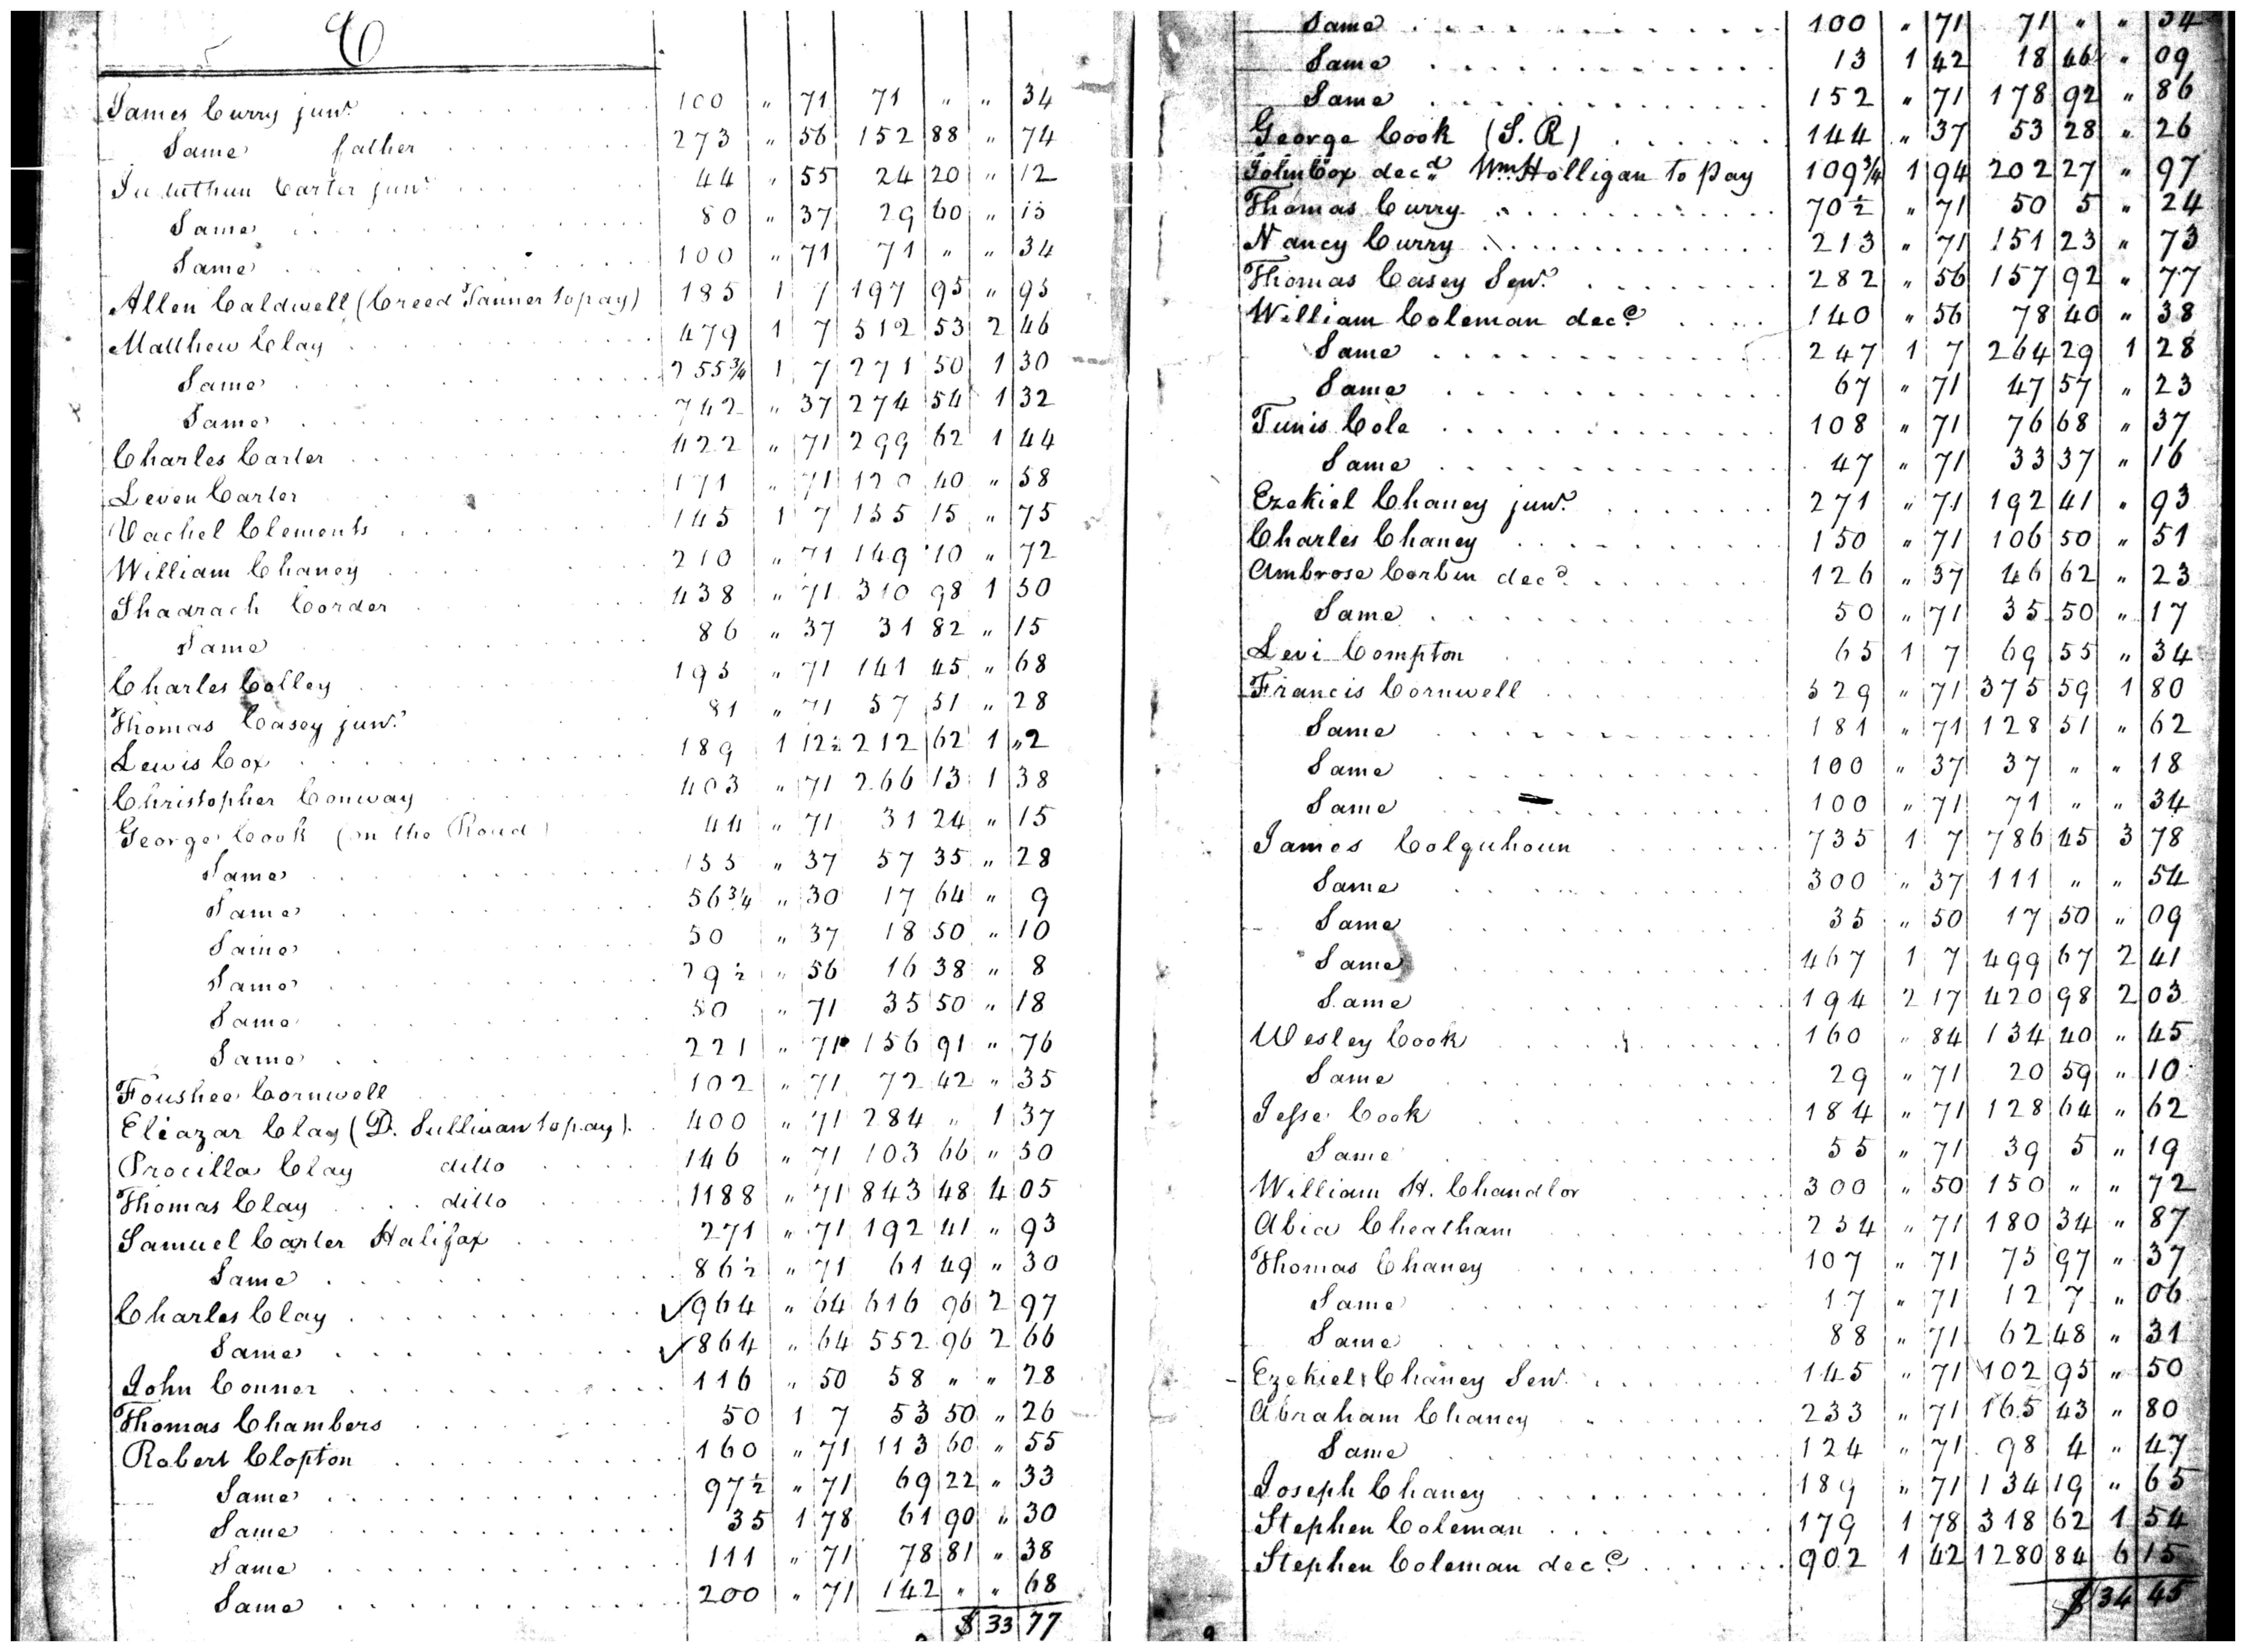 C
James Curry junr. 100 " 71 71 " " 34
Same father 273 " 56 152 88 " 74
Carter junr. 44 " 55 24 20 " 12
Same 80 " 37 29 60 " 15
Same 100 " 71 71 " " 34
Allen Caldwell (Creed Tanner to pay) 185 1 7 197 95 " 95
Matthew Clay 479 1 7 512 53 2 46
Same 255 3/4 1 7 271 50 1 30
Same 742 " 37 274 54 1 32
Charles Carter 422 " 71 299 62 1 44
Leven Carter 171 " 71 120 40 " 58
Vachel Clements 145 1 7 155 15 " 75
William Chaney 210 " 71 149 10 " 72
Shadrach Corder 438 " 71 310 98 1 50
Same 86 " 37 31 82 " 15
Charles Colley 195 " 71 141 45 " 68
Thomas Casey junr. 81 " 71 57 51 " 28
Lewis Cox 189 1 12½ 212 62 1 "2
Christopher Conway 403 " 71 266 13 1 38
George Cook (on the Road) 44 " 71 31 24 " 15
Same 155 " 37 57 35 " 28
Same 56 3/4 " 30 17 64 " 9
Same 50 " 37 18 50 " 10
Same 29½ " 56 16 38 " 8
Same 50 " 71 35 50 " 18
Same 221 " 71 156 91 " 76
Foushee Cornwell 102 " 71 72 42 " 35
Eliazar Clay (D. Sullivan to pay). 400 " 71 284 " 1 37
Procilla Clay ditto 146 " 71 103 66 " 50
Thomas Clay ditto 1188 " 71 843 48 4 05
Samuel Carter Halifax 271 " 71 192 41 " 93
Same 86½ " 71 61 49 " 30
Charles Clay ✓964 " 64 616 96 2 97
Same ✓864 " 64 552 96 2 66
John Conner 116 " 50 58 " " 28
Thomas Chambers 50 1 7 53 50 " 26
Robert Clopton 160 " 71 113 60 " 55
Same 97½ " 71 69 22 " 33
Same 35 1 78 61 90 " 30
Same 111 " 71 78 81 " 38
Same 200 " 71 142 " " 68
$ 33 77
Same 100 " 71 71 " " 34
Same 13 1 42 18 46 " 09
Same 152 " 71 178 92 " 86
George Cook (S. R) 144 " 37 53 28 " 26
John Cox decd. Wm Holligan to pay 109 3/4 1 94 202 27 " 97
Thomas Curry 70½ " 71 50 5 " 24
Nancy Curry 213 " 71 151 23 " 73
Thomas Casey Senr. 282 " 56 157 92 " 77
William Coleman decd. 140 " 56 78 40 " 38
Same 247 1 7 264 29 1 28
Same 67 " 71 47 57 " 23
Tunis Cole 108 " 71 76 68 " 37
Same 47 " 71 33 37 " 16
Ezekiel Chaney junr. 271 " 71 192 41 " 93
Charles Chaney 150 " 71 106 50 " 51
Ambrose Corbin decd. 126 " 37 46 62 " 23
Same 50 " 71 35 50 " 17
Levi Compton 65 1 7 69 55 " 34
Francis Cornwell 529 " 71 375 59 1 80
Same 181 " 71 128 51 " 62
Same 100 " 37 37 " " 18
Same 100 " 71 71 " " 34
James Colquhoun 735 1 7 786 45 3 78
Same 300 " 37 111 " " 54
Same 35 " 50 17 50 " 09
Same 467 1 7 499 67 2 41
Same 194 2 17 420 98 2 03
Wesley Cook 160 " 84 134 40 " 45
Same 29 " 71 20 59 " 10
Jesse Cook 184 " 71 128 64 " 62
Same 55 " 71 39 5 " 19
William H. Chandlor 300 " 50 150 " " 72
Abia Cheatham 254 " 71 180 34 " 87
Thomas Chaney 107 " 71 75 97 " 37
Same 17 " 71 12 7 " 06
Same 88 " 71 62 48 " 31
Ezekiel Chaney Senr. 145 " 71 102 95 " 50
Abraham Chaney 233 " 71 165 43 " 80
Same 124 " 71 98 4 " 47
Joseph Chaney 189 " 71 134 19 " 65
Stephen Coleman 179 1 78 318 62 1 54
Stephen Coleman decd. 902 1 42 1280 84 6 15
$ 34 45